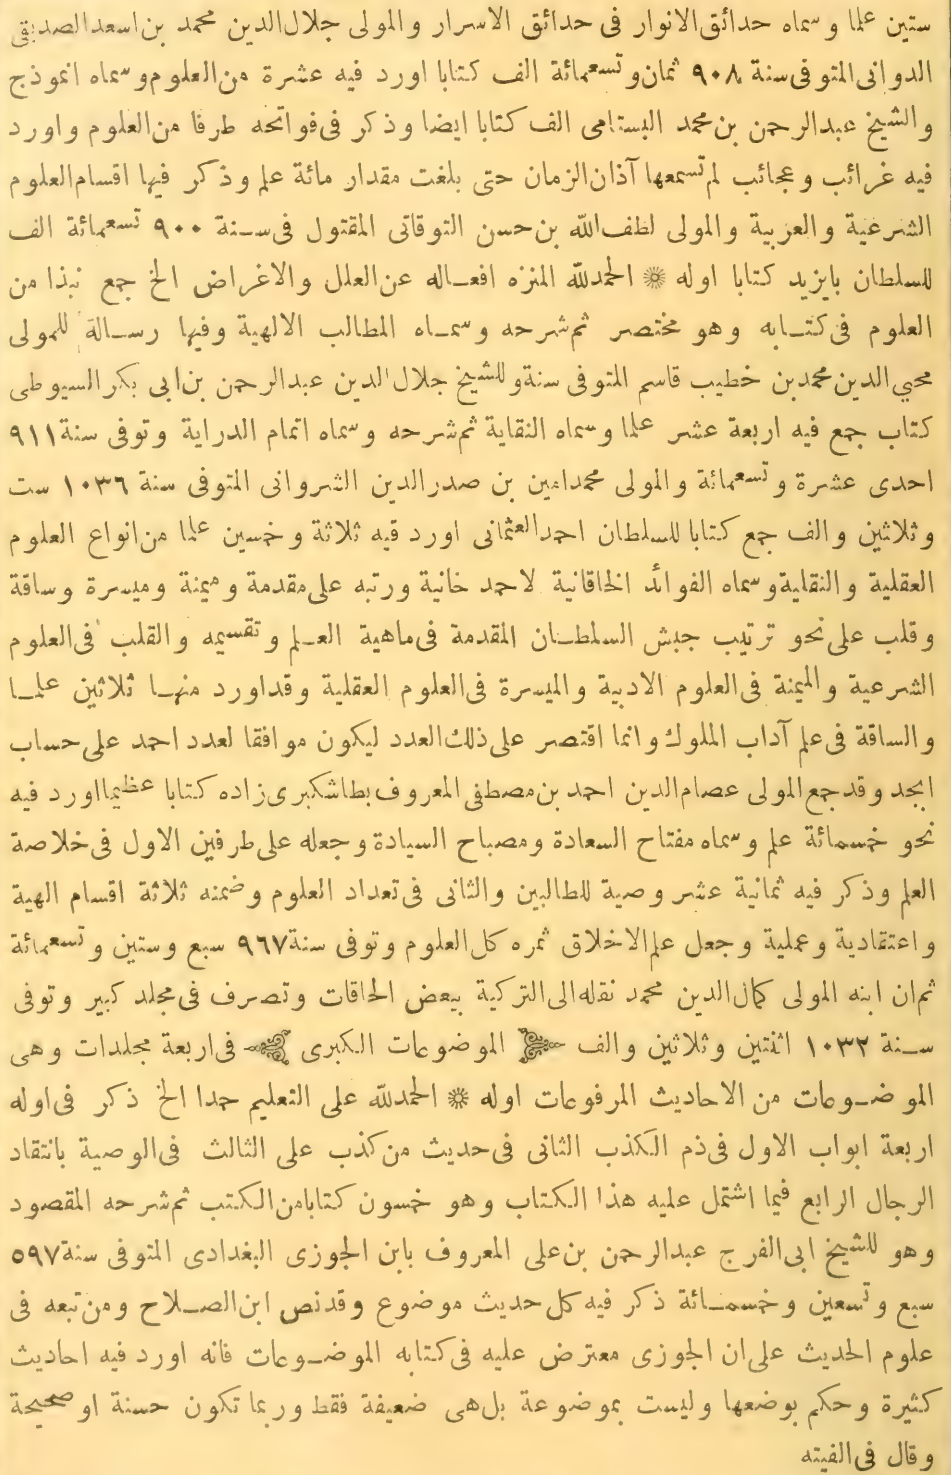 ستين علما وسماه حدائق الانوار فى حدائق الاسرار والمولى جلال الدين محمد بن اسعد الصديقى
الدوانى المتوفى سنة ٩٠٨ ثمان وتسعمائة الف كتابا اورد فيه عشرة من العلوم وسماه انموذج
والشيخ عبدالرحمن بن محمد البسطامى الف كتابا ايضا وذكر فى فواتحه طرفا من العلوم واورد
فيه غرائب وعجائب لم تسمعها آذان الزمان حتى بلغت مقدار مائة علم وذكر فيها اقسام العلوم
الشرعية والعربية والمولى لطف الله بن حسن التوقاتى المقتول فى سنة ٩٠٠ تسعمائة الف
للسلطان بايزيد كتابا اوله * الحمدلله المنزه افعاله عن العلل والاغراض الخ جمع نبذا من
العلوم فى كتابه وهو مختصر ثم شرحه وسماه المطالب الالهية وفيها رسالة للمولى
محيى الدين محمد بن خطيب قاسم المتوفى سنة وللشيخ جلال الدين عبدالرحمن بن ابى بكر السيوطى
كتاب جمع فيه اربعة عشر علما وسماه النقاية ثم شرحه وسماه اتمام الدراية وتوفى سنة ٩١١
احدى عشرة وتسعمائة والمولى محمد امين بن صدر الدين الشروانى المتوفى سنة ١٠٣٦ ست
وثلاثين والف جمع كتابا للسلطان احمد العثمانى اورد فيه ثلاثة وخمسين علما من انواع العلوم
العقلية والنقلية وسماه الفوائد الخاقانية لاحمد خانية ورتبه على مقدمة وميمنة وميسرة وساقة
وقلب على نحو ترتيب جيش السلطان المقدمة فى ماهية العلم وتقسيمه والقلب فى العلوم
الشرعية والميمنة فى العلوم الادبية والميسرة فى العلوم العقلية وقد اورد منها ثلاثين علما
والساقة فى علم آداب الملوك وانما اقتصر على ذلك العدد ليكون موافقا لعدد احمد على حساب
ابجد وقد جمع المولى عصام الدين احمد بن مصطفى المعروف بطاشكبرى زاده كتابا عظيما اورد فيه
نحو خمسمائة علم وسماه مفتاح السعادة ومصباح السيادة وجعله على طرفين الاول فى خلاصة
العلم وذكر فيه ثمانية عشر وصية للطالبين والثانى فى تعداد العلوم وضمنه ثلاثة اقسام الهية
واعتقادية وعملية وجعل علم الاخلاق ثمره كل العلوم وتوفى سنة ٩٦٧ سبع وستين وتسعمائة
ثم ان ابنه المولى كمال الدين محمد نقله الى التركية ببعض الحاقات وتصرف فى مجلد كبير وتوفى
سنة ١٠٣٢ اثنتين وثلاثين والف الموضوعات الكبرى فى اربعة مجلدات وهى
الموضوعات من الاحاديث المرفوعات اوله * الحمدلله على التعليم حمدا الخ ذكر فى اوله
اربعة ابواب الاول فى ذم الكذب الثانى فى حديث من كذب على الثالث فى الوصية بانتقاد
الرجال الرابع فيما اشتمل عليه هذا الكتاب وهو خمسون كتابا من الكتب ثم شرحه المقصود
وهو للشيخ ابى الفرج عبدالرحمن بن على المعروف بابن الجوزى البغدادى المتوفى سنة ٥٩٧
سبع وتسعين وخمسمائة ذكر فيه كل حديث موضوع وقد نص ابن الصلاح ومن تبعه فى
علوم الحديث على ان الجوزى معترض عليه فى كتابه الموضوعات فانه اورد فيه احاديث
كثيرة وحكم بوضعها وليست بموضوعة بل هى ضعيفة فقط وربما تكون حسنة او صحيحة
وقال فى الفيته